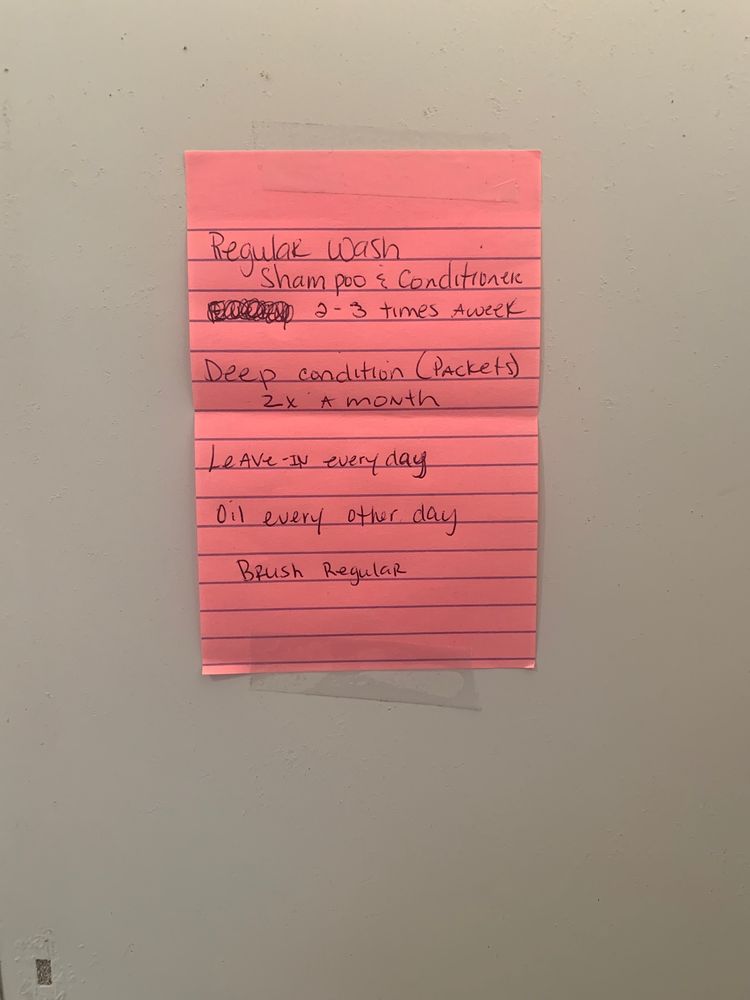 Regular Wash
Shampoo & Conditioner
2-3 times A week
Deep condition (Packets)
2x A month
Leave-IN every day
Oil every other day
Brush Regular